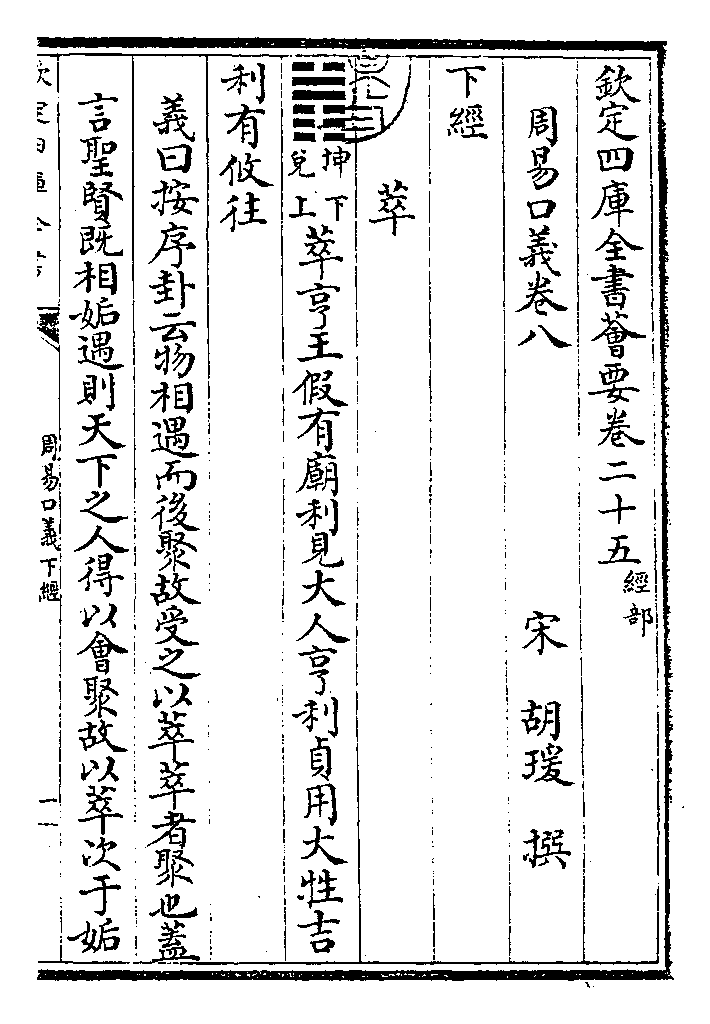 欽定四庫全書薈要卷二十五經部
周易口義卷八 宋 胡瑗 撰
下經
萃
䷬坤下兌上萃亨王假有廟利見大人亨利貞用大牲吉
利有攸往
義曰按序卦云物相遇而後聚故受之以萃萃者聚也蓋
言聖賢既相姤遇則天下之人得以會聚故以萃次于姤
周易口義下經 一